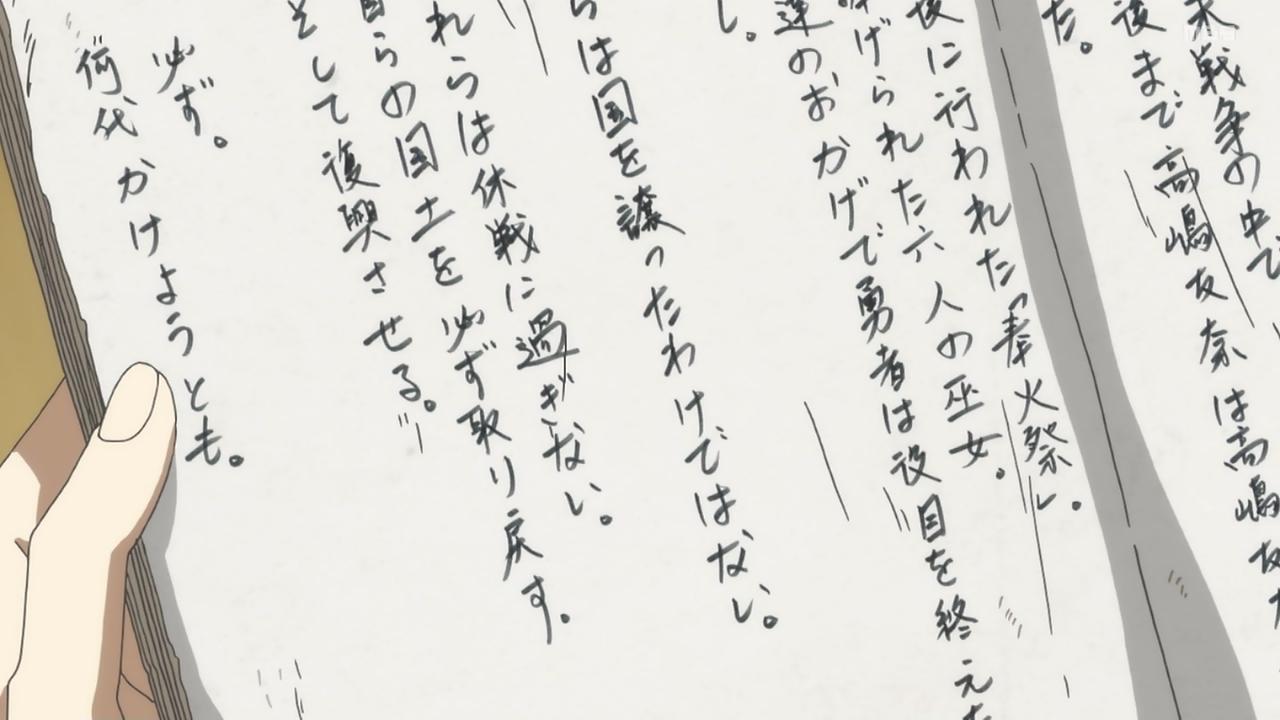 末戦争の中で
後まで高嶋友奈は高嶋友
た。
後に行われた「奉火祭」。
げられた六人の巫女。
達のおかげで勇者は役目を終えた
し。
らは国を譲ったわけではない。
れらは休戦に過ぎない。
らの国土を必ず取り戻す。
そして復興させる。
必ず。
何代かけようとも。